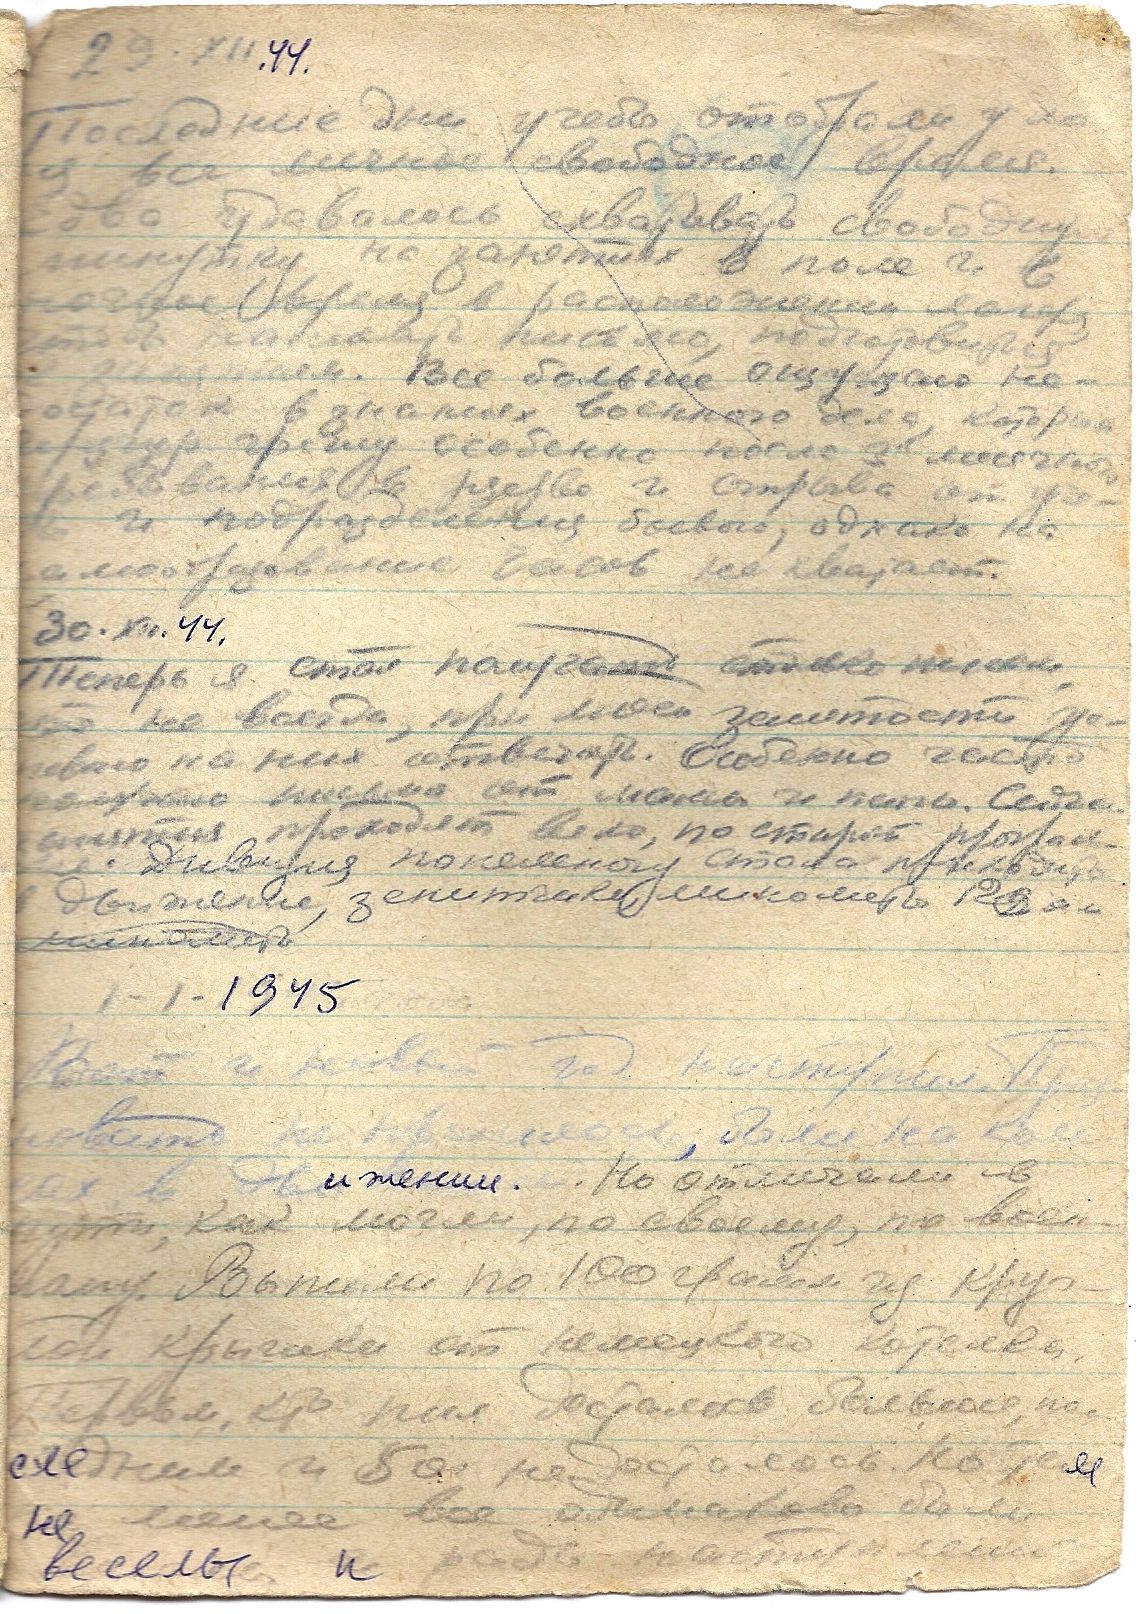 29.XII.44.
Последние дни учебы отобрали у ме
у все личное свободное время.
два удавалось схватывать свободную
минутку на занятиях в поле и в
ночное время в расположении
письмо, подготовиться
занятиям. Все больше ощущаю не-
в знаниях военного дела, которые
особенно после 3 месячного
пребывания в резерве и отрыва от
и подразделения боевого, однако на
самообразование часов не хватает.
30.XII.44.
Теперь я стал получать столько писем,
что не всегда, при моей занятости ус-
певаю на них отвечать. Особенно часто
получаю письма от мамы и папы. Сейча
занятия проходят вяло, по старой програм-
ме. Дивизия понемногу стала приходить
в движение, зенитчики, минометы
минометы
1-1-1945
Вот и новый год наступил.
не пришлось, были на коле
ах в движении. Но отмечали в
пути, как могли, по своему, по воен-
ному. Выпили по 100 грамм из круг-
лой крышки от немецкого котелка.
Первым, кто пил досталось больше, по-
следним и 50 не досталось. Но тем
не менее все одинаково были
веселы и рады наступлению